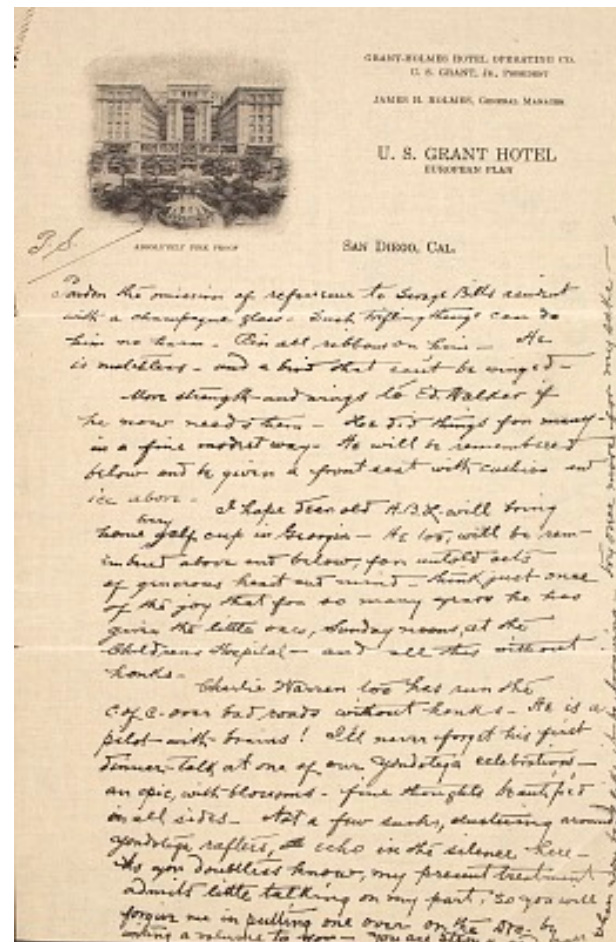 GRANT-HOLMES HOTEL OPERATING CO.
U. S. GRANT, JR., PRESIDENT
JAMES H. HOLMES, GENERAL MANAGER
U. S. GRANT HOTEL
EUROPEAN PLAN
ABSOLUTELY FIRE PROOF
SAN DIEGO, CAL.
P.S.
Pardon the omission of reference to George Bills
with a champagne glass - Such trifling things can do
him no harm - Pin all ribbons on him - He
is matchless - and a bird that can't be winged -
More strength and wings to Ed. Walker if
he now needs them - He did things for many -
in a fine modest way - He will be remembered
below and be given a front seat with cushion and
ice above -
I hope dear old will bring
home every golf cup in Georgia - He too, will be rem-
embered above and below, for untold acts
of generous heart and mind - think just once
of the joy that for so many years he has
given the little ones, Sunday noons, at the
Childrens Hospital - and all this without
honks -
Charlie Warren too has run the
C of C - over bad roads without honks - He is a
pilot with brains! I'll never forget his first
dinner-talk at one of our Yondotega celebrations -
an epic, with blossoms - fine thoughts beautified
on all sides - Not a few such, clustering around
Yondotega rafters, echo in the silence here -
As you doubtless know, my present treatment
admits little talking on my part, so you will
forgive me in putting one over on the by
writing a volume to you - You are